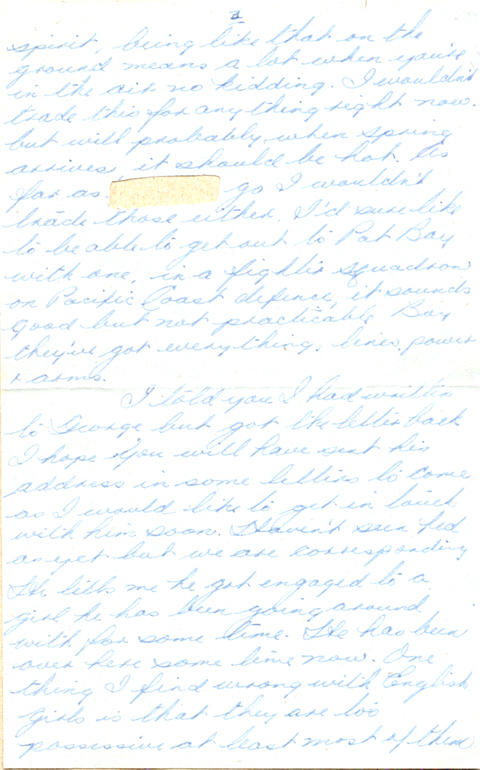 2
spirit, being like that on the
ground means a lot when you're
in the air no kidding. I wouldn't
trade this for anything right now.
but will probably when spring
arrives, it should be hot. As
far as go I wouldn't
trade those either. I'd sure like
to be able to get out to Pat Bay
with one, in a fighter squadron
on Pacific Coast defence, it sounds
good but not practicable. Boy
they've got everything. lines, power
& arms.
I told you I had written
to George but got the letter back
I hope you will have sent his
address in some letters to come
as I would like to get in touch
with him soon. Haven't seen Ted
as yet but we are corresponding
He tells me he got engaged to a
girl he has been going around
with for some time. He has been
over here some time now. One
thing I find wrong with English
girls is that they are too
possessive at least most of them